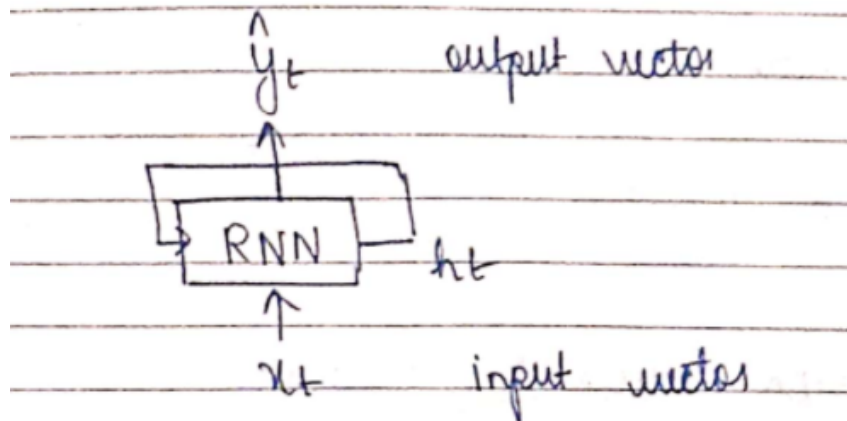 ŷt output vector
RNN
ht
xt input vector